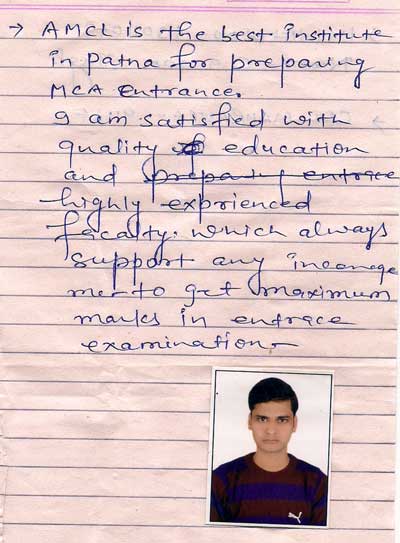 → AMCL is the best institute
in Patna for preparing
MCA entrance.
I am satisfied with
quality of education
and prepary entrace
highly exprienced
faculty. which always
support any
me to get maximum
marks in entrace
examination